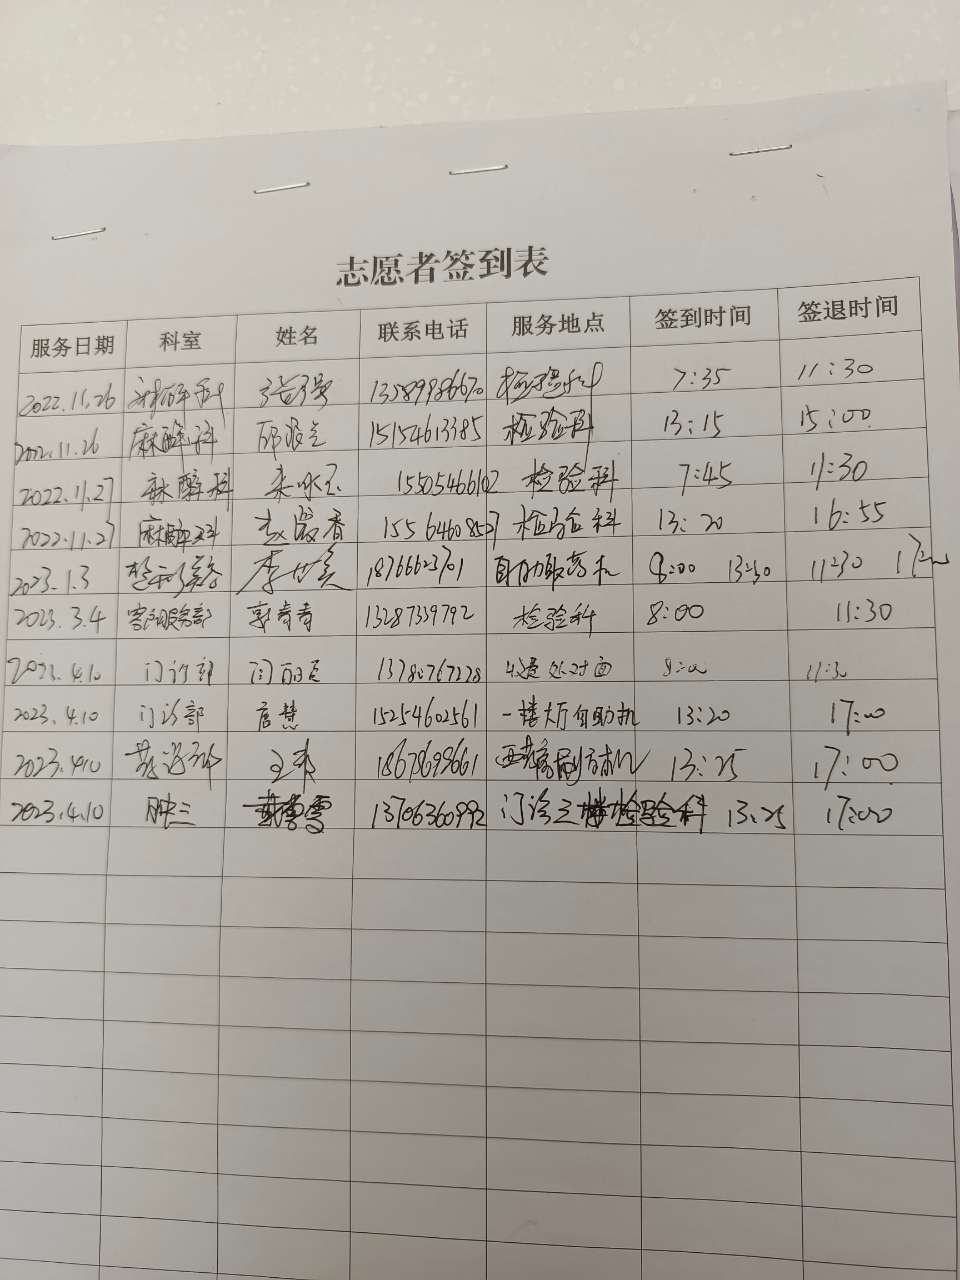 志愿者签到表
服务日期 科室 姓名 联系电话 服务地点 签到时间 签退时间
2022.11.26 麻醉科 张强 13589986670 检验科 7:35 11:30
2022.11.26 麻醉科 15154613385 检验科 13:15 15:00
2022.11.27 麻醉科 15505466102 检验科 7:45 11:30
2022.11.27 麻醉科 香 15564608527 检验科 13:20 16:55
2023.1.3 李 18766623701 自助取 8:00 13:30 11:30 17:00
2023.3.4 客户服务部 郭青青 13287339792 检验科 8:00 11:30
2023.4.10 门诊部 闫 13780767228 处对面 8:00 11:30
2023.4.10 门诊部 慧 15254602561 一楼大厅自助机 13:20 17:00
2023.4.10 王 18678699661 13:25 17:00
2023.4.10 13706360992 门诊三楼检验科 13:25 17:00